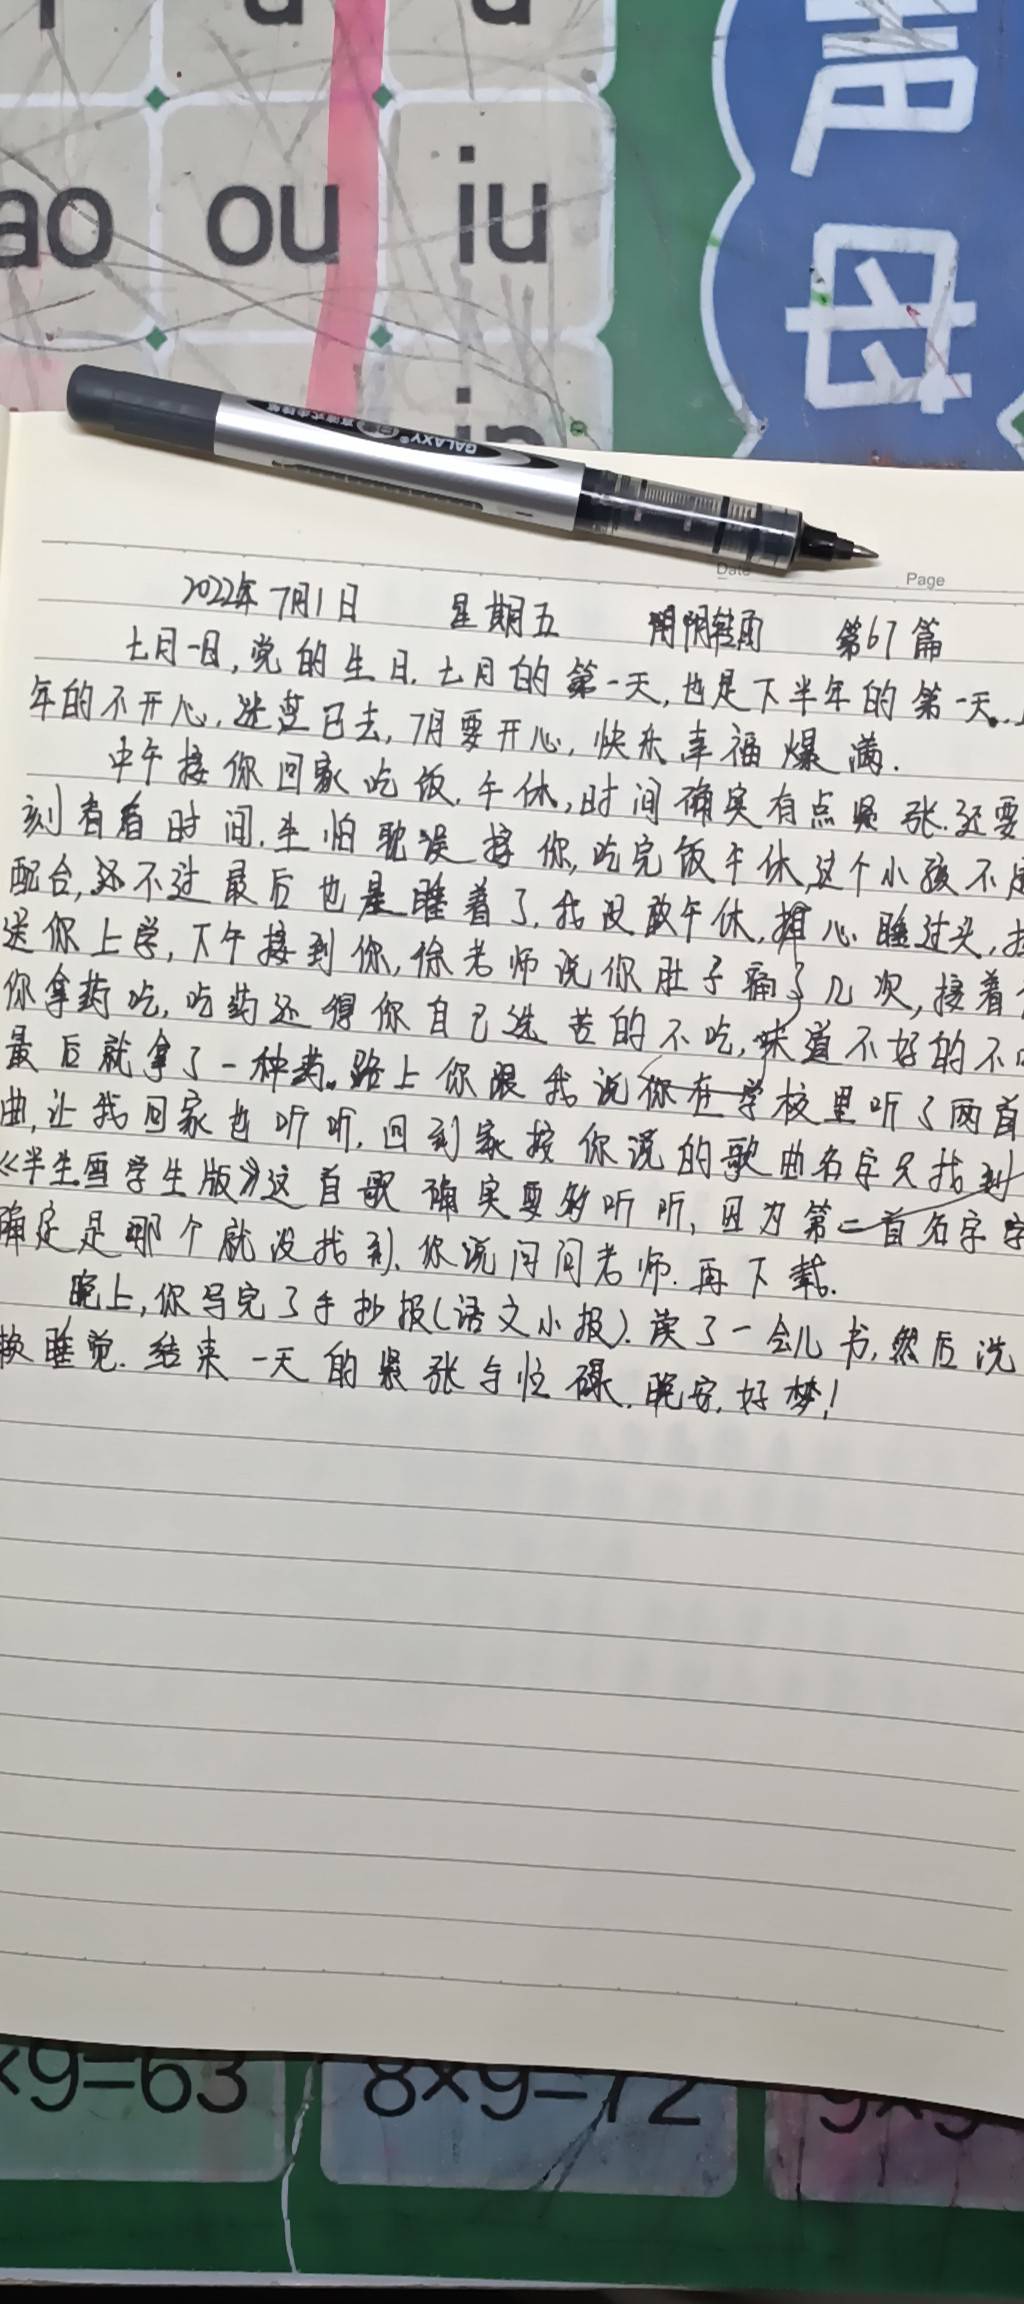 ao ou iu
声母
GALAXY
Date Page
2022年7月1日 星期五 阴阴转雨 第67篇
七月一日,党的生日.七月的第一天,也是下半年的第一天.上
年的不开心,迷茫已去,7月要开心,快乐幸福爆满.
中午接你回家吃饭.午休,时间确实有点紧张.还要
刻看看时间.生怕耽误接你,吃完饭午休,这个小孩不是
配合,还不过最后也是睡着了,我没敢午休,担心睡过头,
送你上学,下午接到你,徐老师说你肚子痛了几次,接着
你拿药吃,吃药还得你自己选苦的不吃,味道不好的不
最后就拿了一种药。路上你跟我说你在学校里听了两首
曲,让我回家也听听.回到家按你说的歌曲名字只找到
《半生雪学生版》这首歌确实要多听听,因为第二首名字字
确定是哪个就没找到.你说问问老师.再下载.
晚上,你写完了手抄报(语文小报).读了一会儿书,然后洗
睡觉.结束一天的紧张与忙碌.晚安,好梦!
×9=63 8×9=72 9×9